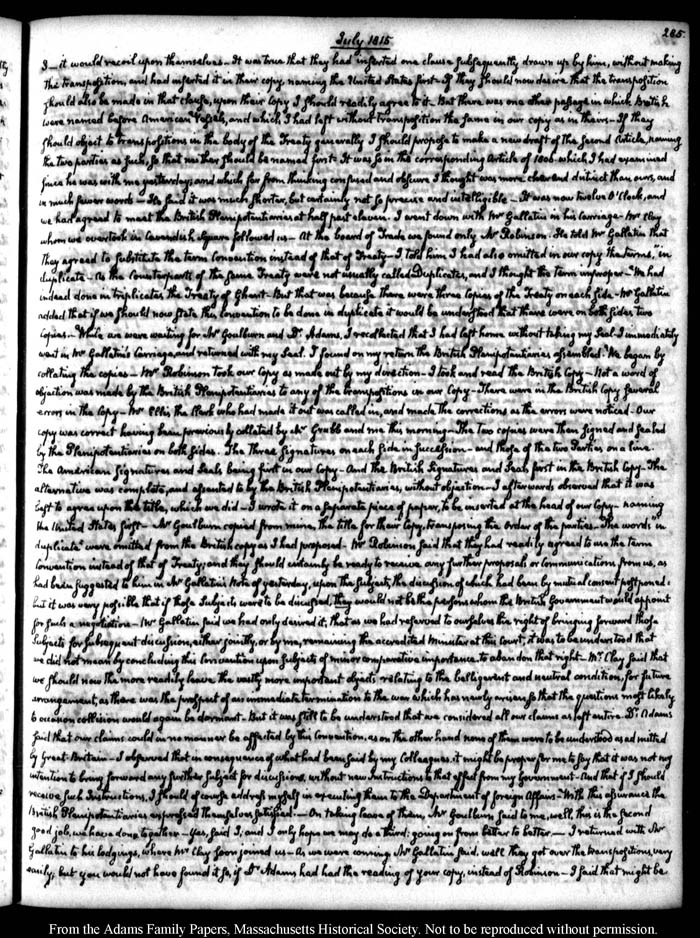 285.
July 1815.
I — it would recoil upon themselves — It was true that they had inserted one clause subsequently drawn up by him, without making
the transposition, and had inserted it in their copy, naming the United States first — If they should now desire that the transposition
should also be made in that clause, upon their Copy I should readily agree to it — But there was one other passage in which British
were named before American Vessels, and which I had left without transposition the same in our copy as in theirs — If they
should object to transpositions in the body of the Treaty generally I should propose to make a new draft of the second Article, naming
the two parties as such, so that neither should be named first — It was so in the corresponding Article of 1806 which I had examined
since he was with me yesterday; and which far from thinking confused and obscure I thought was more clear and distinct than ours, and
in much fewer words — He said it was much shorter, but certainly not so precise and intelligible — It was now twelve O'Clock, and
we had agreed to meet the British Plenipotentiaries at half past eleven. I went down with Mr Gallatin in his Carriage — Mr Clay
whom we overtook in Cavendish Square followed us — At the board of Trade we found only Mr Robinson — He told Mr Gallatin that
they agreed to substitute the term Convention instead of that of Treaty — I told him I had also omitted in our copy the terms, "in
duplicate — as the Counterparts of the same Treaty were not usually called Duplicates, and I thought the term improper — We had
indeed done in triplicates the Treaty of Ghent — But that was because there were three Copies of the Treaty on each side — Mr Gallatin
added that if we should now state this Convention to be done in duplicate it would be understood that there were on both sides two
Copies — While we were waiting for Mr Goulburn and Dr. Adams, I recollected that I had left home without taking my Seal — I immediately
went in Mr Gallatin's Carriage, and returned with my Seal. I found on my return the British Plenipotentiaries assembled. We began by
collating the copies — Mr Robinson took our Copy as made out by my direction — I took and read the British Copy — Not a word of
objection was made by the British Plenipotentiaries to any of the transpositions in our Copy — There were in the British Copy several
errors in the Copy — Mr Ellis the Clerk who had made it out was called in, and made the corrections as the errors were noticed — Our
copy was correct having been previously collated by Mr Grubb and me this morning — The two copies were then signed and sealed
by the Plenipotentiaries on both sides. The three signatures on each side in succession — and those of the two Parties on a line.
The American Signatures and Seals being first in our Copy — And the British Signatures and Seals first in the British Copy — The
alternative was complete, and assented to by the British Plenipotentiaries, without objection — I afterwards observed that it was
best to agree upon the title, which we did — I wrote it on a separate piece of paper, to be inserted at the head of our Copy — naming
the United States first — Mr Goulburn copied from mine, the title for their Copy, transposing the order of the parties — The words "in
duplicate" were omitted from the British copy as I had proposed — Mr Robinson said that they had readily agreed to use the term
Convention instead of that of Treaty; and they should certainly be ready to receive any further proposals or communications from us, as
had been suggested to him in Mr Gallatin's Note of yesterday, upon the Subjects, the discussion of which had been by mutual consent postponed:
but it was very possible that if those Subjects were to be discussed, they would not be the persons whom the British Government would appoint
for such a negotiation — Mr Gallatin said we had only desired it, that as we had reserved to ourselves the right of bringing forward those
Subjects for subsequent discussion, either jointly, or by me, remaining the accredited Minister at this Court, it was to be understood that
we did not mean by concluding this Convention upon subjects of minor comparative importance, to abandon that right — Mr Clay said that
we should now the more readily leave the vastly more important objects relating to the belligerent and neutral condition, for future
arrangement, as there was the prospect of an immediate termination to the war which has newly arisen, so that the questions most likely
to occasion collision would again be dormant — But it was still to be understood that we considered all our claims as left entire — Dr. Adams
said that our claims could in no manner be affected by this Convention, as on the other hand none of them were to be understood as admitted
by Great Britain — I observed that in consequence of what had been said by my Colleagues, it might be proper for me to say that it was not my
intention to bring forward any further Subject for discussion, without new Instructions to that effect from my Government — And that if I should
receive such Instructions, I should of course address myself in executing them to the Department of foreign Affairs — With this assurance the
British Plenipotentiaries expressed themselves satisfied. — On taking leave of them, Mr Goulburn said to me, well, this is the second
good job, we have done together — Yes, said I, and I only hope we may do a third; going on from better to better. — I returned with Mr
Gallatin to his lodgings, where Mr Clay soon joined us — As we were coming, Mr Gallatin said, well they got over the transpositions, very
easily; but you would not have found it so, if Dr Adams had had the reading of your copy, instead of Robinson — I said that might be
From the Adams Family Papers, Massachusetts Historical Society. Not to be reproduced without permission.